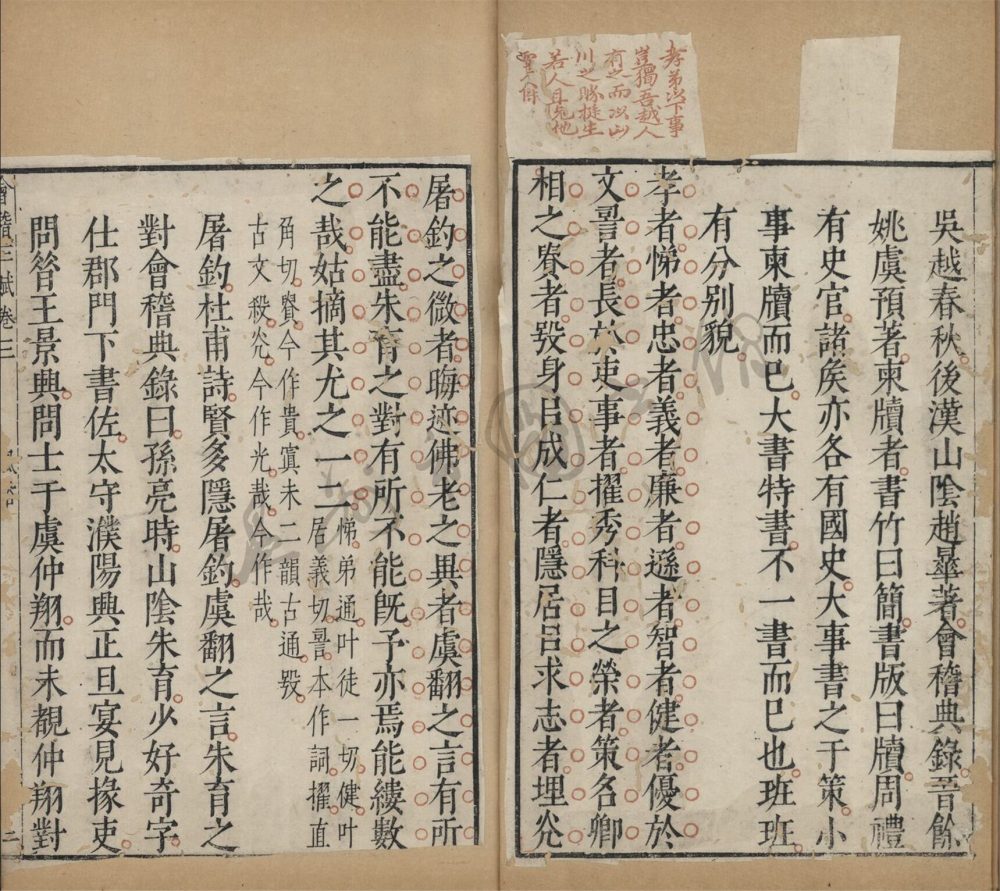 孝弟以下事
豈獨吾越人
有之而以山
川之勝挺生
吳越春秋後漢山陰趙曅著會稽典錄晉餘
姚虞預著柬牘者書竹曰簡書版曰牘周禮
有史官諸矦亦各有國史大事書之于策小
事柬牘而巳大書特書不一書而巳也班班
有分别貌
孝者悌者忠者義者廉者遜者智者健者優於
文䛐者長於吏事者擢秀科目之榮者策名卿
相之賚者㱽身㠯成仁者隱居㠯求志者埋炗
屠釣之微者晦迹佛老之異者虞翻之言有所
不能盡朱育之對有所不能旣予亦焉能縷數
之哉姑摘其尤之一二
悌弟通叶徒一切健叶
居義切䛐本作詞擢直
角切賚今作貴寘未二韻古通㱽
古文殺炗今作光㢤今作哉
屠釣杜甫詩賢多隱屠釣虞翻之言朱育之
對會稽典錄曰孫亮時山陰朱育少好奇字
仕郡門下書佐太守濮陽興正旦宴見掾吏
問昝王景興問士于虞仲翔而未覩仲翔對
會稽三賦卷三
二